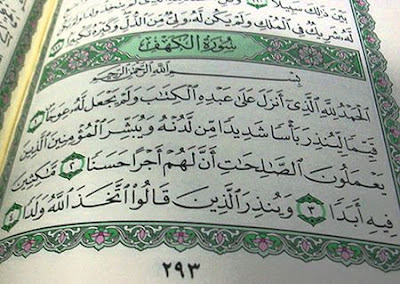 بَيْنَ ذَٰلِكَ سَبِيلًا
لَّهُۥ شَرِيكٌ فِى ٱلْمُلْكِ وَلَمْ يَكُن لَّهُۥ وَلِىٌّ مِّنَ ٱلذُّلِّ وَكَبِّرْهُ تَكْبِيرًا
سُورَةُ الْكَهْفِ
بِسْمِ ٱللَّهِ ٱلرَّحْمَٰنِ ٱلرَّحِيمِ
ٱلْحَمْدُ لِلَّهِ ٱلَّذِىٓ أَنزَلَ عَلَىٰ عَبْدِهِ ٱلْكِتَٰبَ وَلَمْ يَجْعَل لَّهُۥ عِوَجَا ١
قَيِّمًا لِّيُنذِرَ بَأْسًا شَدِيدًا مِّن لَّدُنْهُ وَيُبَشِّرَ ٱلْمُؤْمِنِينَ ٱلَّذِينَ
يَعْمَلُونَ ٱلصَّٰلِحَٰتِ أَنَّ لَهُمْ أَجْرًا حَسَنًا ٢ مَّٰكِثِينَ
فِيهِ أَبَدًا ٣ وَيُنذِرَ ٱلَّذِينَ قَالُوا۟ ٱتَّخَذَ ٱللَّهُ وَلَدًا ٤
٢٩٣